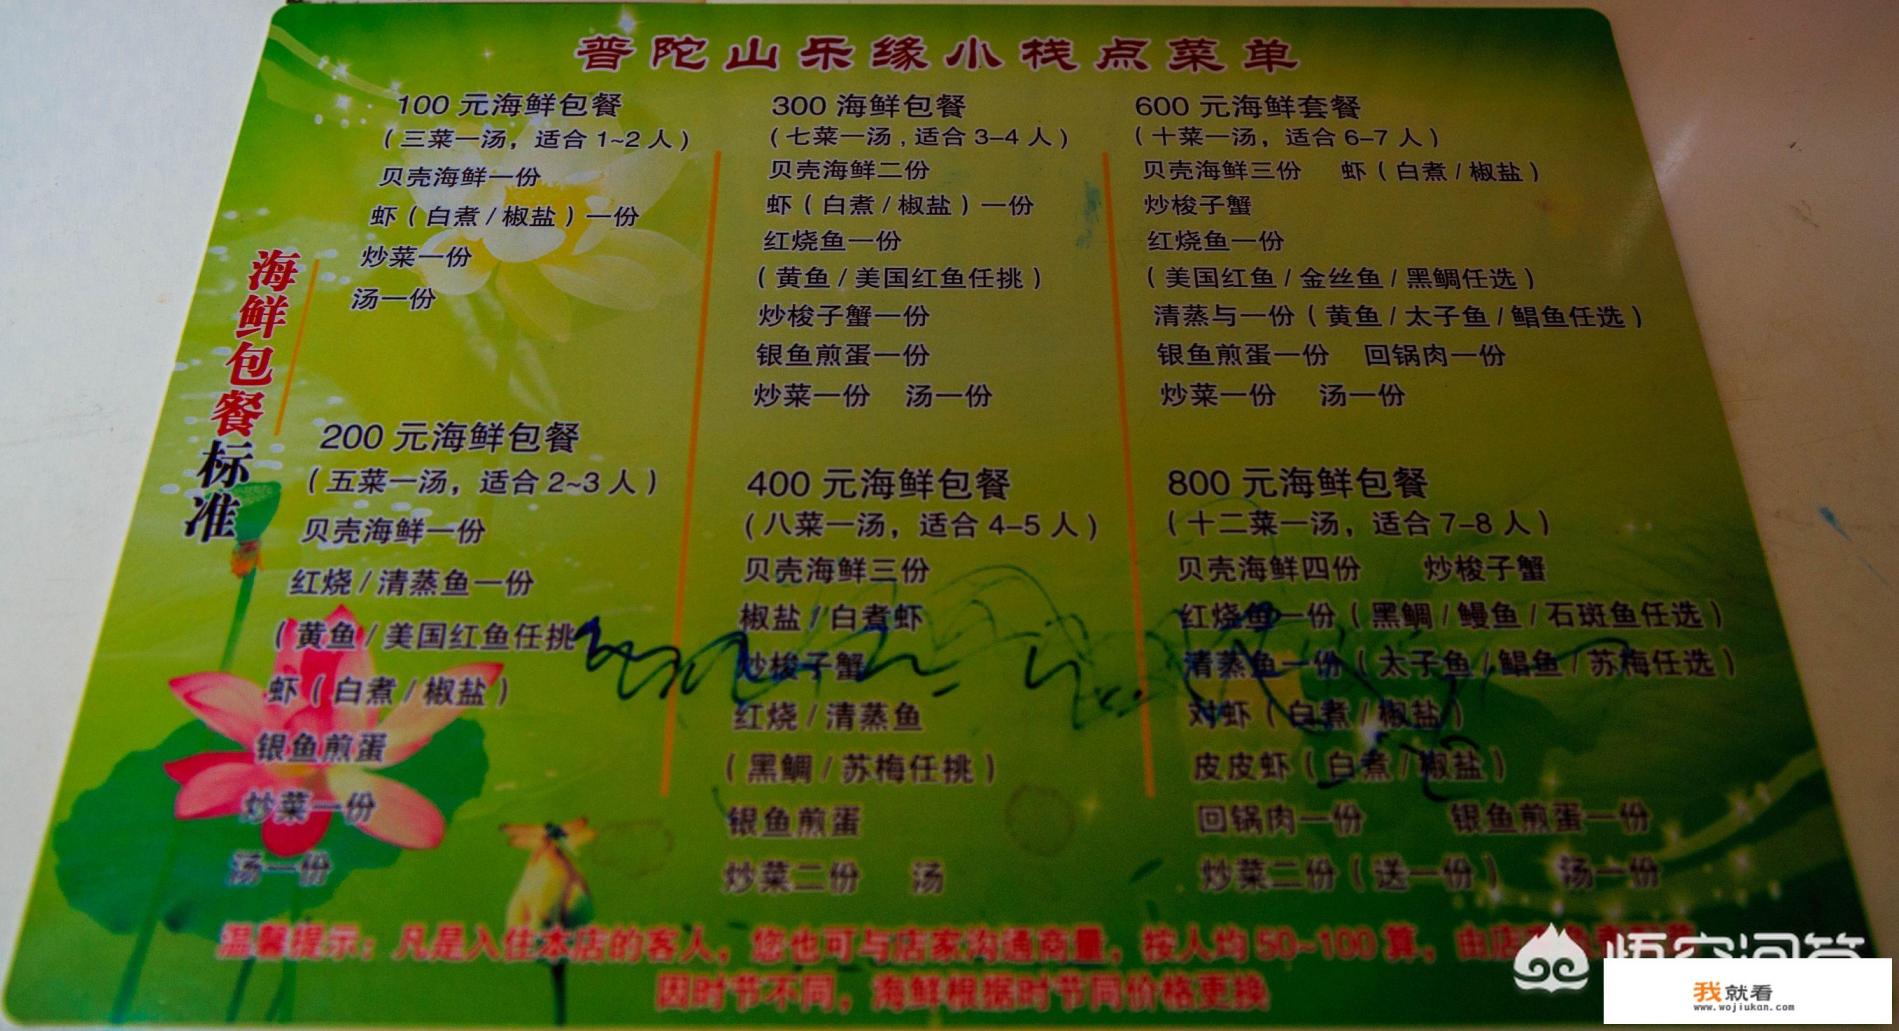 普陀山乐缘小栈点菜单
海鲜包餐标准
100 元海鲜包餐
（三菜一汤，适合 1~2 人）
贝壳海鲜一份
虾（白煮 / 椒盐）一份
炒菜一份
汤一份
200 元海鲜包餐
（五菜一汤，适合 2~3 人）
贝壳海鲜一份
红烧 / 清蒸鱼一份
（黄鱼 / 美国红鱼任挑
虾（白煮 / 椒盐）
银鱼煎蛋
炒菜一份
汤一份
300 海鲜包餐
（七菜一汤 , 适合 3–4 人）
贝壳海鲜二份
虾（白煮 / 椒盐）一份
红烧鱼一份
（黄鱼 / 美国红鱼任挑）
炒梭子蟹一份
银鱼煎蛋一份
炒菜一份 汤一份
400 元海鲜包餐
（八菜一汤，适合 4–5 人）
贝壳海鲜三份
椒盐 / 白煮虾
炒梭子蟹
红烧 / 清蒸鱼
（黑鲷 / 苏梅任挑）
银鱼煎蛋
炒菜二份 汤
600 元海鲜套餐
（十菜一汤，适合 6–7 人）
贝壳海鲜三份 虾（白煮 / 椒盐）
炒梭子蟹
红烧鱼一份
（美国红鱼 / 金丝鱼 / 黑鲷任选）
清蒸与一份（黄鱼 / 太子鱼 / 鲳鱼任选）
银鱼煎蛋一份 回锅肉一份
炒菜一份 汤一份
800 元海鲜包餐
（十二菜一汤，适合 7–8 人）
贝壳海鲜四份 炒梭子蟹
红烧鱼一份（黑鲷 / 鳗鱼 / 石斑鱼任选）
清蒸鱼一份（太子鱼 / 鲳鱼 / 苏梅任选）
对虾（白煮 / 椒盐）
皮皮虾（白煮 / 椒盐）
回锅肉一份 银鱼煎蛋一份
炒菜二份（送一份） 汤一份
温馨提示：凡是入住本店的客人，您也可与店家沟通商量，按人均 50~100 算，由店
因时节不同，海鲜根据时节同价格更换
悟空问答
我就看
www.wojiukan.com